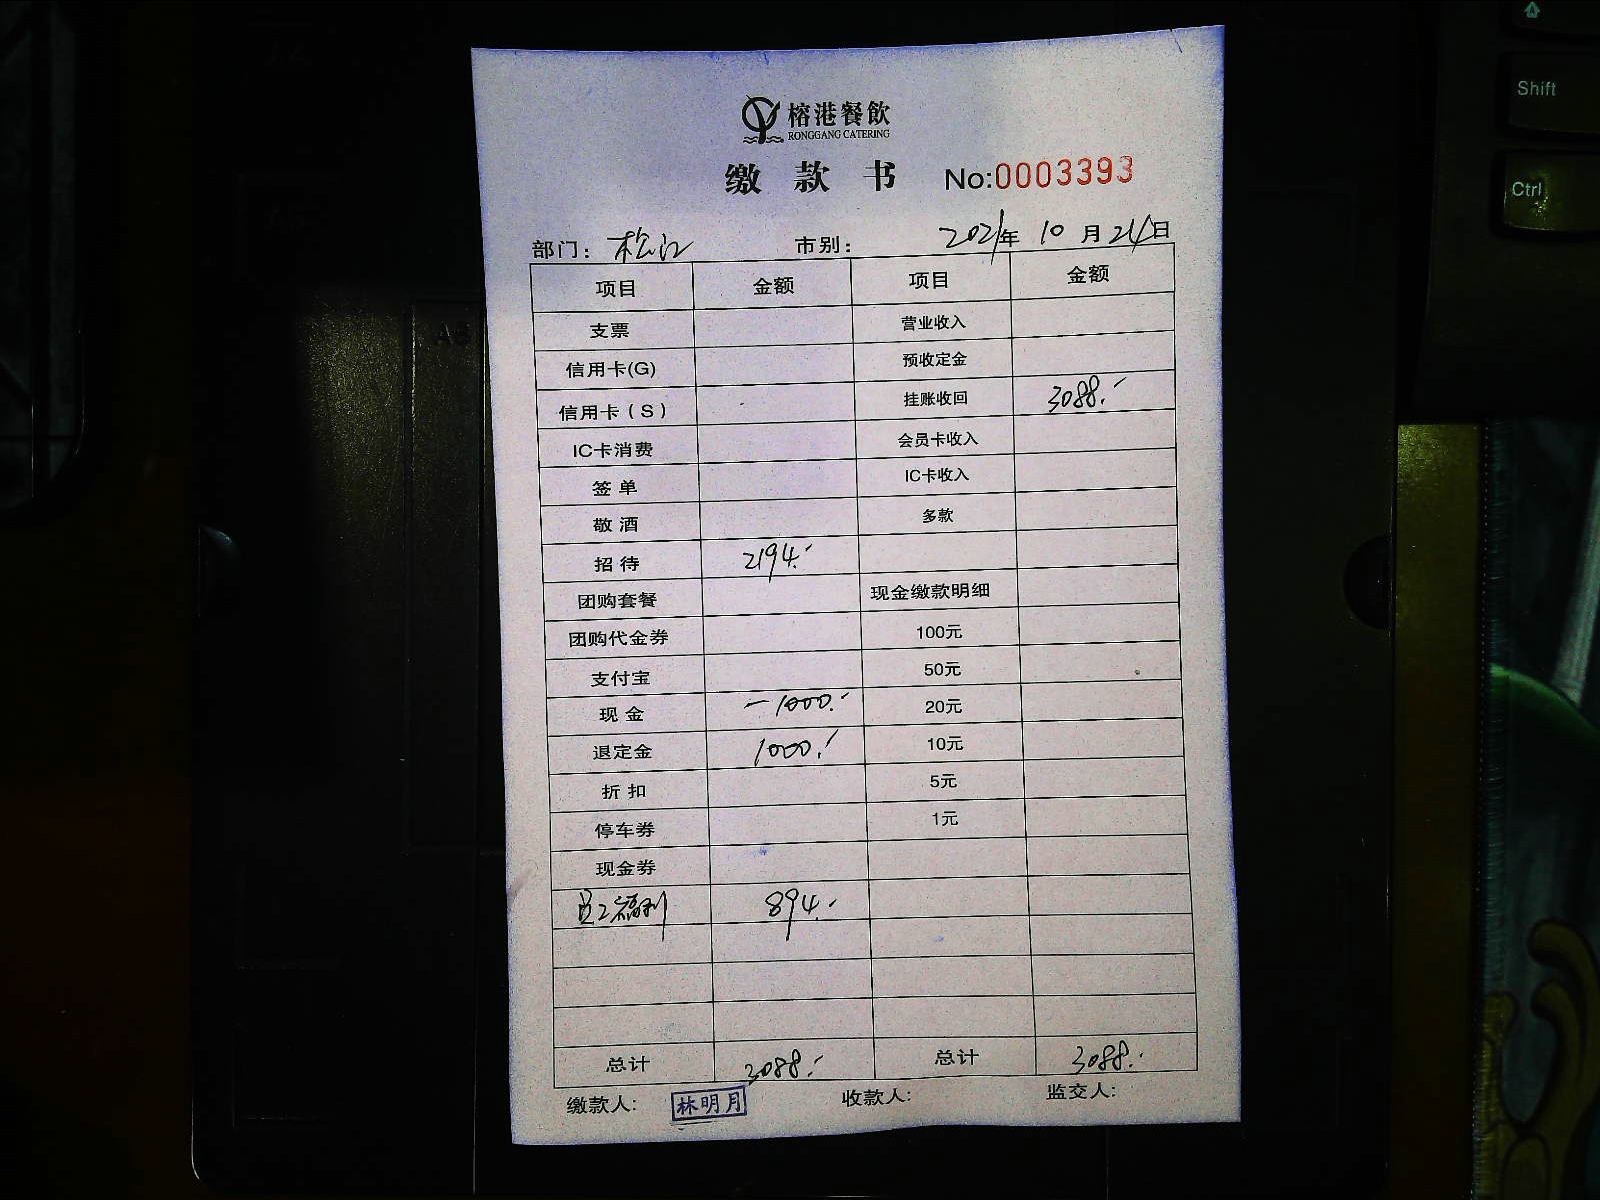 榕港餐飲
RONGGANG CATERING
缴 款 书 No:0003393
部门: 松江 市别: 2021年 10 月 24日
项目 金额 项目 金额
支票 营业收入
信用卡(G) 预收定金
信用卡(S) 挂账收回 3088.-
IC卡消费 会员卡收入
签 单 IC卡收入
敬 酒 多款
招 待 2194.-
团购套餐 现金缴款明细
团购代金券 100元
支付宝 50元
现 金 -1000.- 20元
退定金 1000.- 10元
折 扣 5元
停车券 1元
现金券
员工福利 894.-
总计 3088.- 总计 3088.-
缴款人: 林明月 收款人: 监交人:
Shift
Ctrl